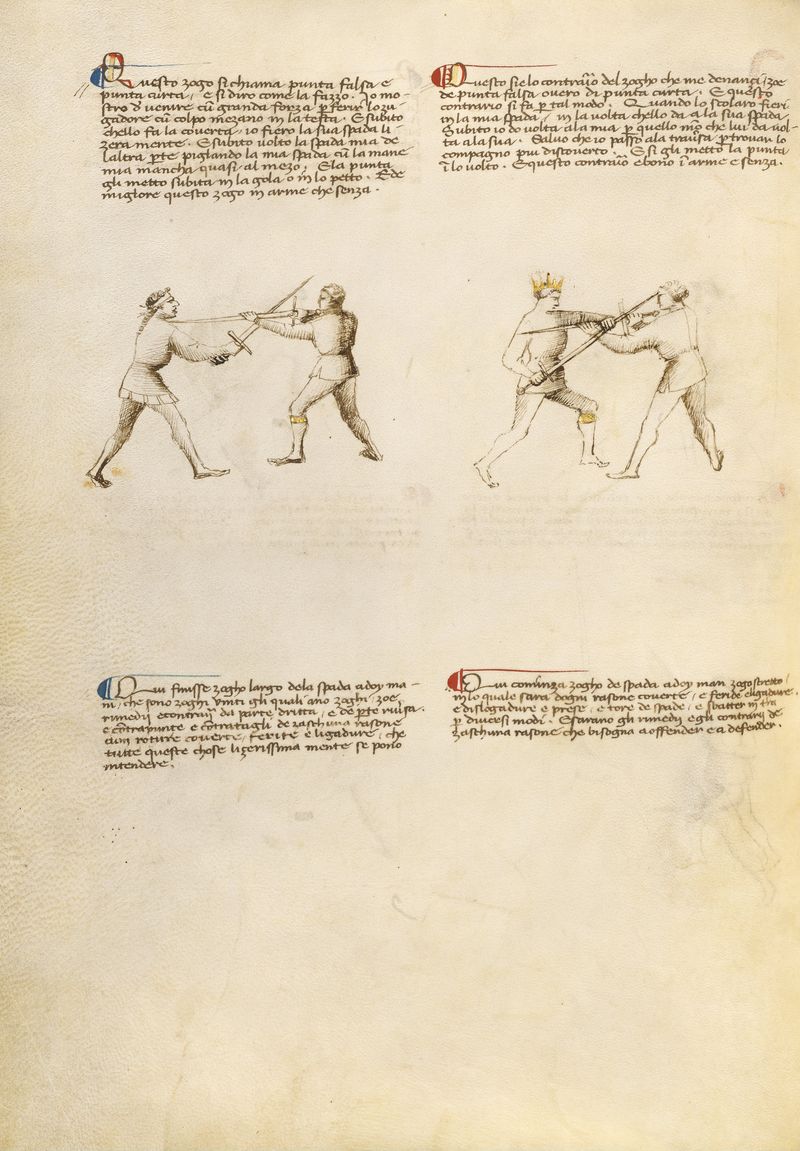 Questo zogo si chiama punta falsa e
punta curta, e si diro come la fazzo. Io mo-
stro d venire cū granda forza p ferir lo zu-
gadore cū colpo mezano in la testa. E subito
chello fa la coverta io fiero la sua spada li-
zera mente. E subito volto la spada mia de
laltra pte pigliando la mia spada cū la mane
mia mancha quasi al mezo. E la punta
gli metto subita in la gola o in lo petto. Ede
migliore questo zogo in arme che senza.
Questo si e lo contrario del zogho che me denançi, zoe
de punta falsa overo di punta curta. E questo
contrario si fa p tal modo. Quando lo scolaro fieri
in la mia spada, in la volta chello da a la sua spada
Subito io do volta ala mia p quello mō che lui da vol-
ta ala sua. Salvo che io passo ala traversa p trovar lo
compagno piu discoverto. E si gli metto la punta
ī lo volto. E questo contrario e bono ī arme e senza.
Qui finisse zogho largo dela spada a doy ma-
ni, che sono zoghi vinti gli quali ano zoghi, zoe
rimedii e contrarii da parte dritta, e de pte riversa.
e cōtrapunte e cōtratagli de zaschuna rasone
cum roture coverte, ferite e ligadure, che
tutte queste chose lizerissima mente se pono
intendere.
Qui cominza zogho de spada a doy man zogo stretto,
in lo quale sara dogni rasone coverte, e feride e ligadure,
e dislogadure e prese, e tore de spade, e sbatter in tra
p diversi modi. E sarano gli rimedii e gli contrarii de
zaschuna rasone che bisogna a offender e a defender.